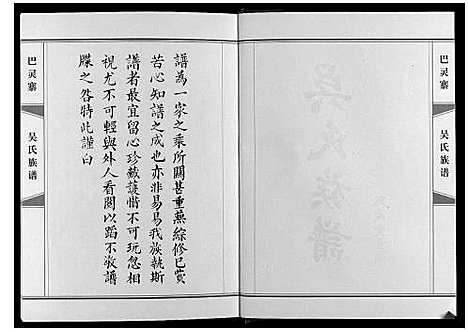 巴灵寨
吴氏族谱
譜為一家之乘所關甚重蕪綜修已費
苦心知譜之成也亦非易易我族執斯
譜者最宜留心珍藏護惜不可玩忽相
視尤不可輕與外人看閲以蹈不敬譜
牒之咎特此謹白
吳氏族譜
巴灵寨
吴氏族谱